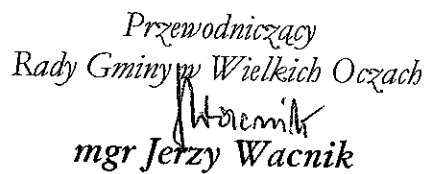 Przewodniczący
Rady Gminy w Wielkich Oczach
JWacnik
mgr Jerzy Wacnik